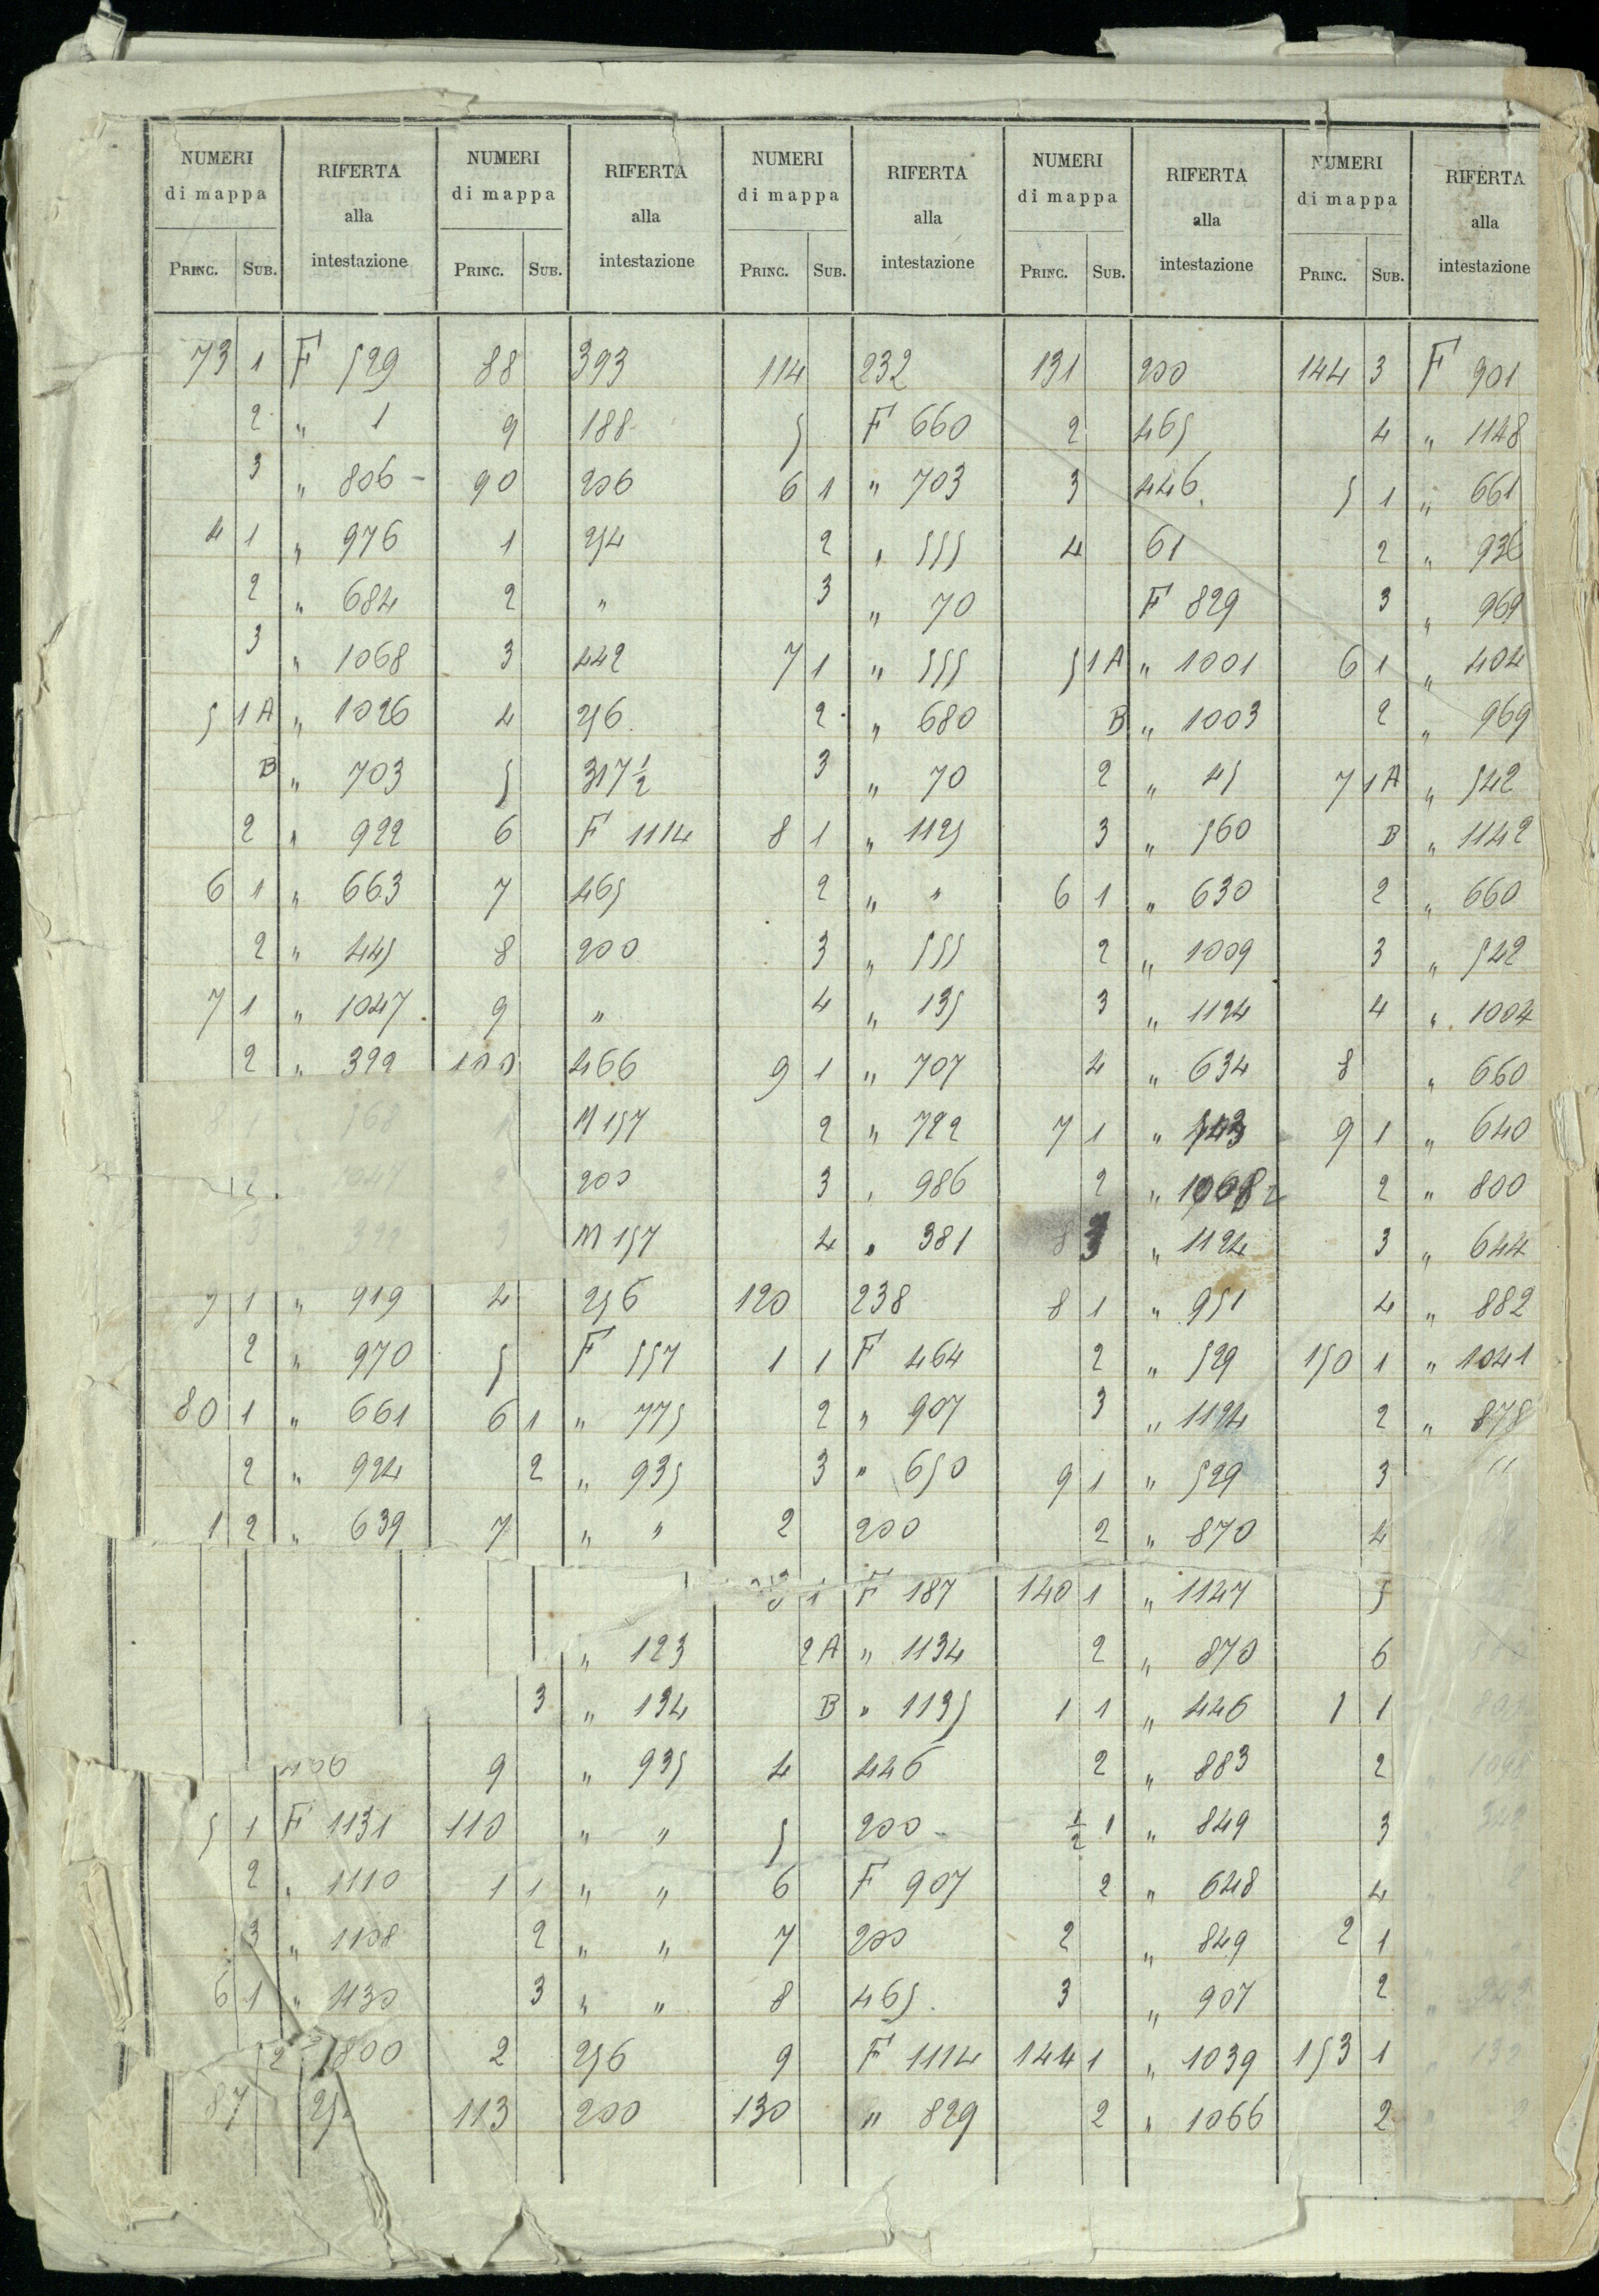 NUMERI di mappa RIFERTA alla intestazione NUMERI di mappa RIFERTA alla intestazione NUMERI di mappa RIFERTA alla intestazione NUMERI di mappa RIFERTA alla intestazione NUMERI di mappa RIFERTA alla intestazione
PRINC. SUB. PRINC. SUB. PRINC. SUB. PRINC. SUB. PRINC. SUB.
73 1 F 529 88 393 114 232 131 200 144 3 F 901
2 " 1 9 188 5 F 660 2 465 4 " 1148
3 " 806 – 90 206 6 1 " 703 3 446 5 1 " 661
4 1 " 976 1 254 2 " 555 4 61 2 " 936
2 " 684 2 " 3 " 70 F 829 3 " 969
3 " 1068 3 442 7 1 " 555 5 1A " 1001 6 1 " 404
5 1A " 1026 4 256 2 " 680 B " 1003 2 " 969
B " 703 5 317 1/2 3 " 70 2 " 45 7 1A " 542
2 " 922 6 F 1114 8 1 " 1125 3 " 560 B " 1142
6 1 " 663 7 465 2 " " 6 1 " 630 2 " 660
2 " 445 8 200 3 " 555 2 " 1009 3 " 542
7 1 " 1047 9 " 4 " 135 3 " 1124 4 " 1004
2 " 392 100 466 9 1 " 707 4 " 634 8 " 660
8 1 568 1 M 157 2 " 722 7 1 " 543 9 1 " 640
2 1047 2 200 3 " 986 2 " 1068 2 " 800
3 392 3 M 157 4 " 381 3 " 1124 3 " 644
9 1 " 919 4 256 120 238 8 1 " 951 4 " 882
2 " 970 5 F 557 1 1 F 464 2 " 529 150 1 " 1041
80 1 " 661 6 1 " 775 2 " 907 3 " 1124 2 " 878
2 " 924 2 " 935 3 " 650 9 1 " 529 3 "
1 2 " 639 7 " " 2 200 2 " 870 4
1 F 187 140 1 " 1147 5
" 123 2A " 1134 2 " 870 6
3 " 134 B " 1135 1 1 " 446 1 1
9 " 935 4 446 2 " 883 2
5 1 F 1131 110 " " 5 200 – 1/2 1 " 849 3
2 " 1110 1 1 " " 6 F 907 2 " 648 4
3 " 1108 2 " " 7 200 2 " 849 2 1
6 1 " 1130 3 " " 8 465 3 " 907 2
2 800 2 256 9 F 1114 144 1 " 1039 153 1
87 113 200 130 " 829 2 " 1066 2